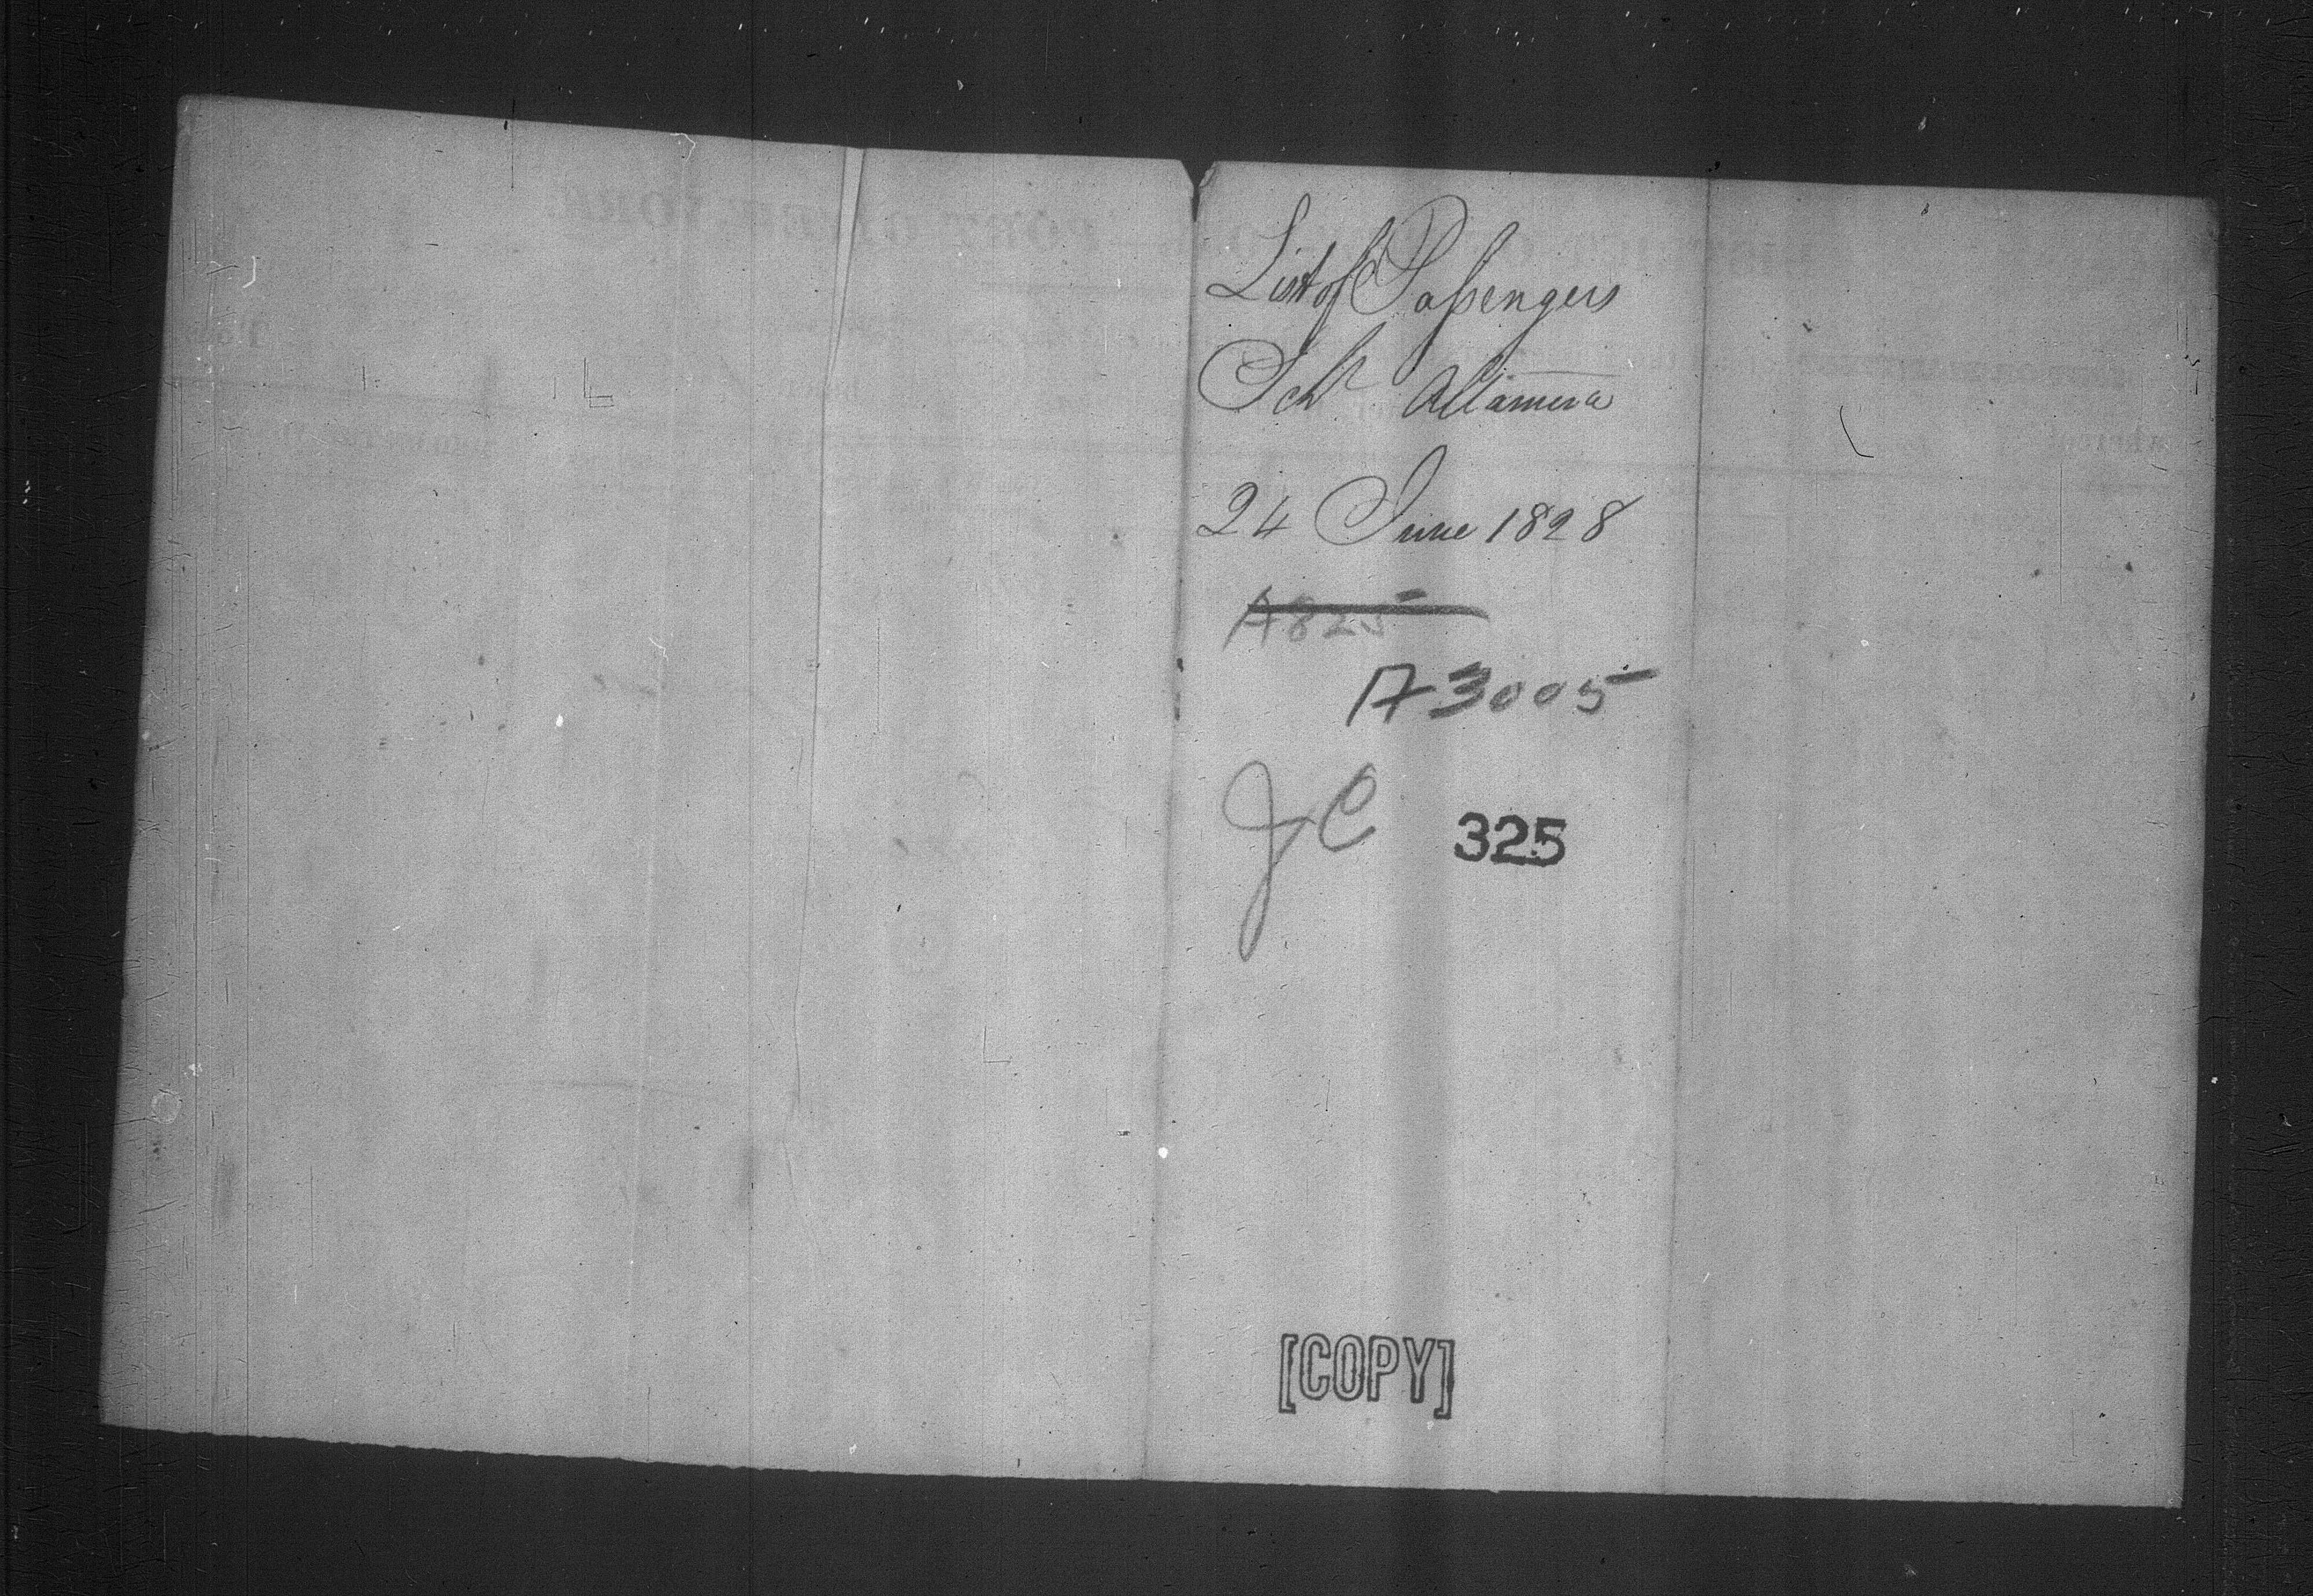 List of Passengers
Schr Altamira
24 June 1828
A825
A3005
JC 325
[COPY]